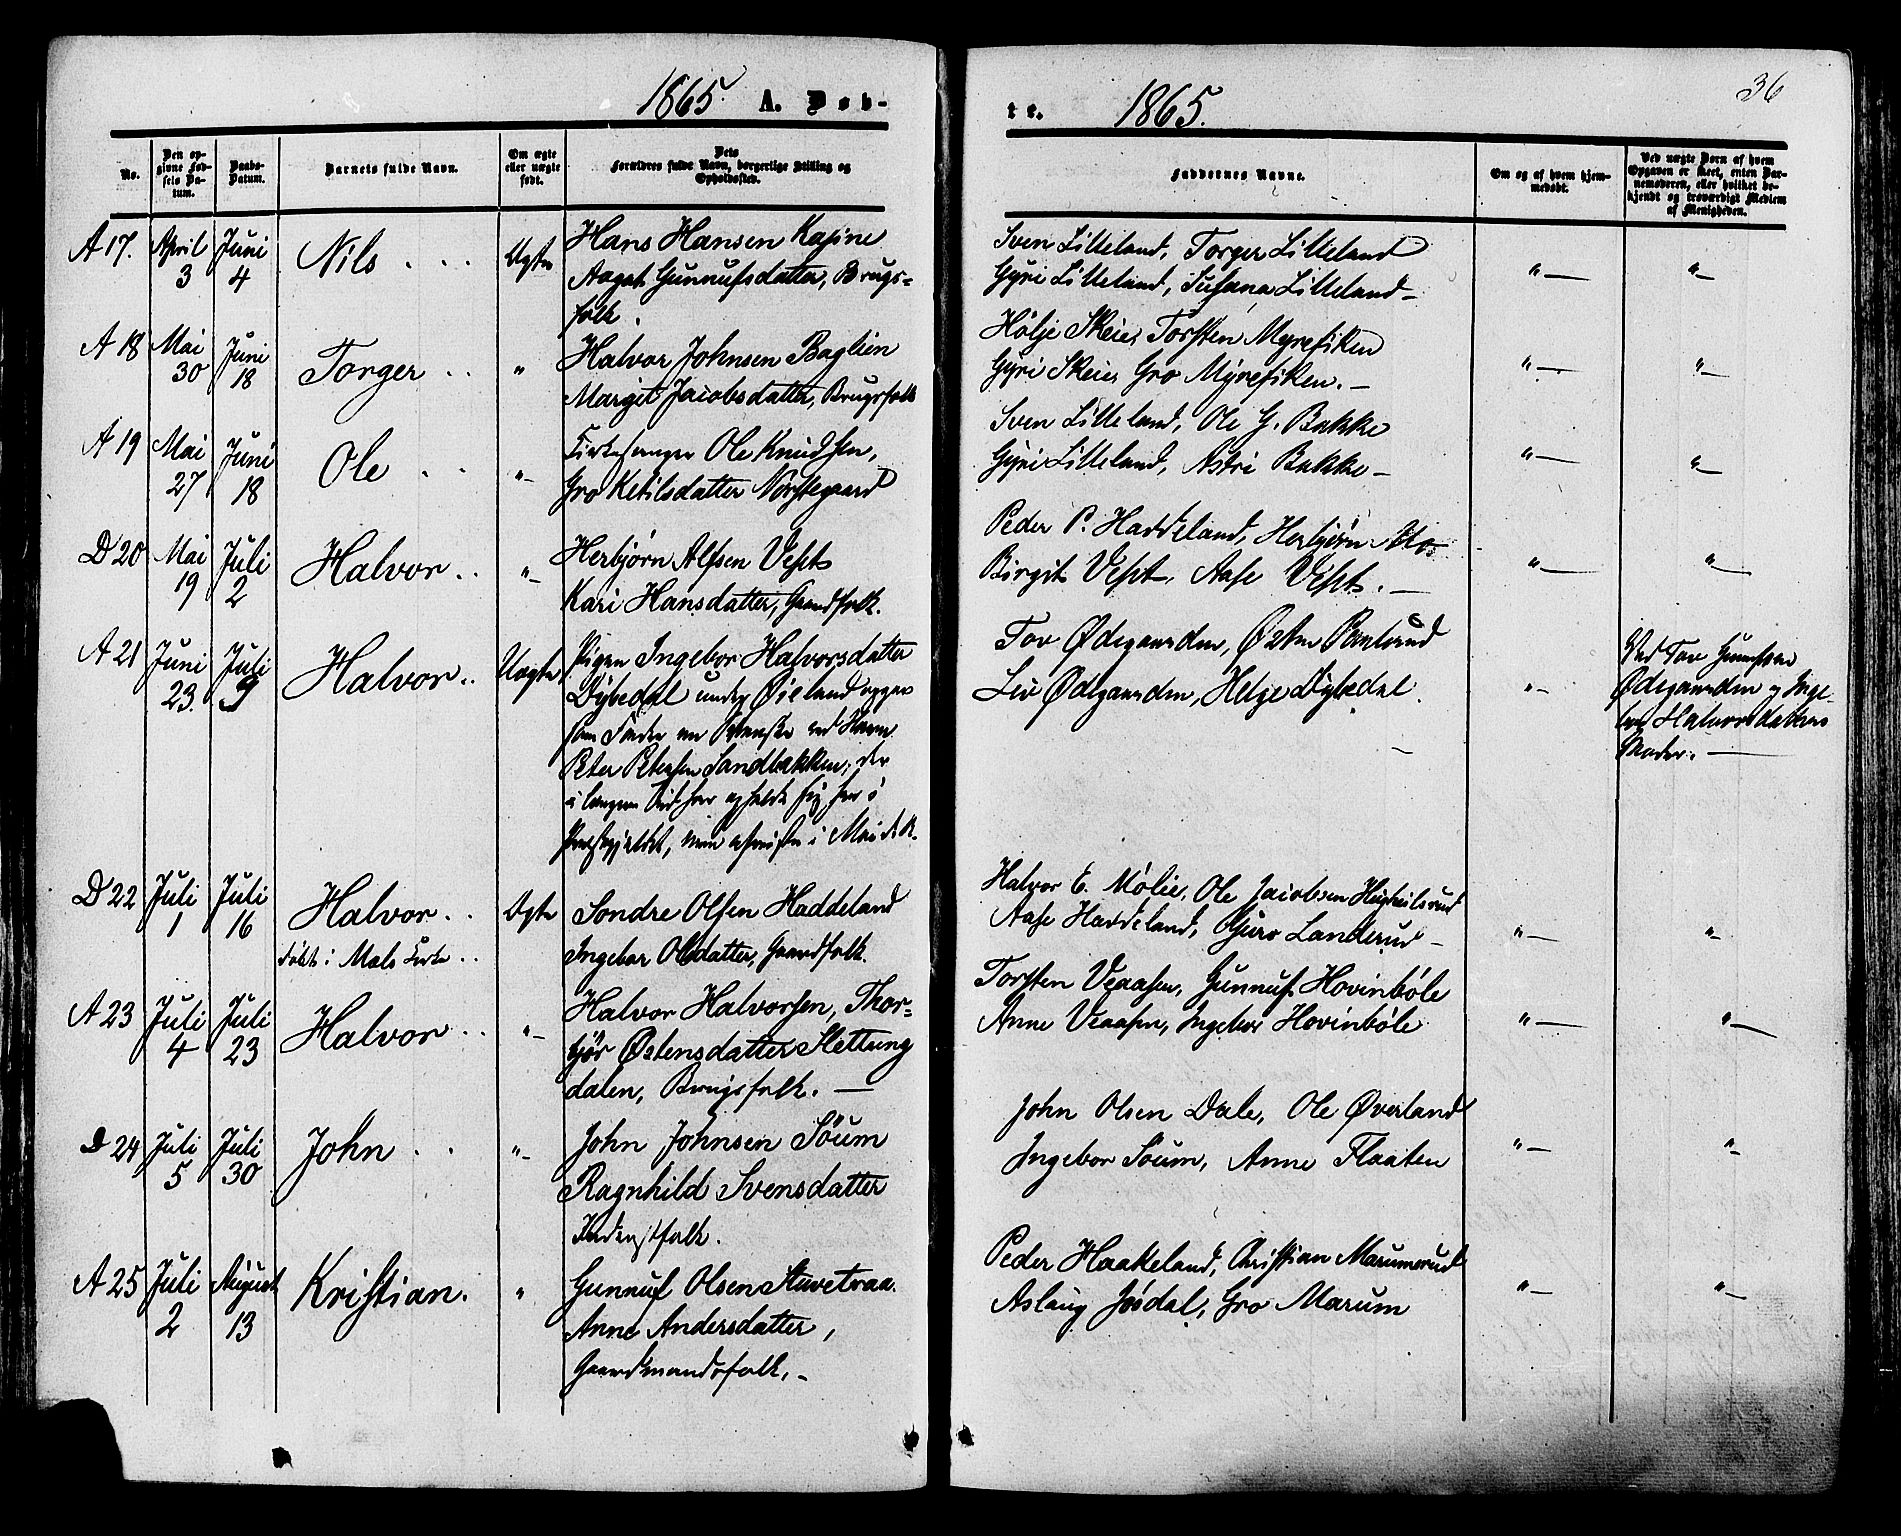 1865. A. Døb-
No.
Den op-
givne Fød-
sels Da-
tum.
Daabs-
Datum.
Barnets fulde Navn.
Om ægte
eller uægte
født.
Dets
Forældres fulde Navn, borgerlige Stilling og
Opholdssted.
A 17.
April
3
Juni
4
Nils . . .
Ægte
Hans Hansen Kasine
Aagot Gunnufsdatter, Brugs-
folk.
A 18
Mai
30
Juni
18
Torger . .
"
Halvor Johnsen Baglien
Margit Jacobsdatter, Brugsfolk
A 19
Mai
27
Juni
18
Ole . .
"-
Kirkesanger Ole Knudsen,
Gro Ketilsdatter Nørstegaard
D 20
Mai
19
Juli
2
Halvor . .
"-
Herbjørn Alfsen Vest
Kari Hansdatter, Gaardfolk.
A 21
Juni
23.
Juli
9
Halvor . .
Uægte
Pigen Ingebor Halvorsdatter
Dybedal under Øieland opgav
som Fader en Svenske ved Navn
Peter Petersen Sandbakken, der
i længere Tid har opholdt sig her i
Præstegjeldet, men afreiste i Mai d. A.
D 22
Juli
1
Juli
16
Halvor . .
døbt i Mæls Kirke . .
Ægte
Sondre Olsen Haddeland
Ingebor Olsdatter, Gaardfolk.
A 23
Juli
4
Juli
23
Halvor . .
"-
Halvor Halvorsen, Thor-
bjør Østensdatter Slettung
dalen, Brugsfolk. —
D 24
Juli
5
Juli
30
John . .
"-
John Johnsen Søum
Ragnhild Svensdatter
Inderstfolk.
A 25
Juli
2
August
13
Kristian.
"
Gunnuf Olsen Stuvetraa.
Anne Andersdatter,
Gaardmandsfolk. -
te. 1865.
36
Faddernes Navne.
Om og af hvem hjem-
medøbt.
Ved uægte Børn af hvem
Opgaven er skeet, enten Bar-
nemoderen, eller hvilket be-
kjendt og troværdigt Medlem
af Menigheden.
Sven Lilleland, Torger Lilleland
Gyri Lilleland, Susana Lilleland -
"—
"-
Hølje Skeie, Torsten Myrefiken
Gyri Skeie, Gro Myrefiken. -
"—
"-
Sven Lilleland, Ole G. Bakke
Gyri Lilleland, Astri Bakke -
"—
"-
Peder P. Haddeland, Herbjørn Mo
Birgit Vest, Aase Vest. —
"—
"-
Tov Ødegaarden, Østen
Liv Ødegaarden, Helge Dybedal.
"-
Ved Tov Gunufsen
Ødegaarden og Inge-
bor Halvorsdatters
Moder. —
Halvor E. Mølie, Ole Jacobsen
Aase Haddeland, Gjuro Landerud -
"—
"-
Torsten Veaasen, Gunnuf Hovinbøle
Anne Veaasen, Ingebor Hovinbøle
"—
"—
John Olsen Dale, Ole Øverland
Ingebor Søum, Anne Flaaten
"-
"-
Peder Haakeland, Christian Marumsrud
Aslaug Jøsdal, Gro Marum
"-
"-